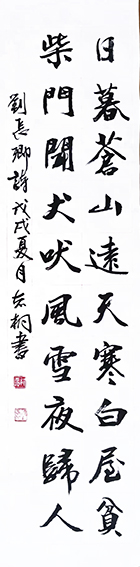 日暮蒼山遠天寒白屋貧
柴門聞犬吠風雪夜歸人
劉長卿詩戊戌夏月 桐書